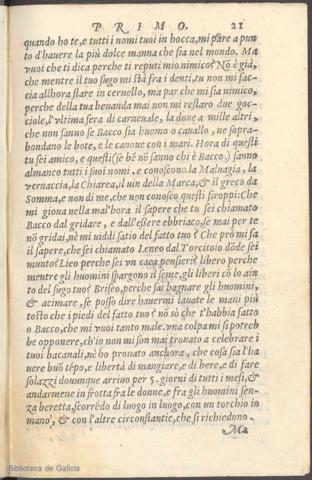 PRIMO. 21
quando ho te, e tutti i nomi tuoi in bocca, mi pare a pun
to d'hauere la più dolce manna che sia nel mondo. Ma
vuoi che ti dica perche ti reputi mio nimico? Nõ è già,
che mentre il tuo sugo mi stà fra i denti, tu non mi fac-
cia allhora stare in ceruello, ma par che mi sia nimico,
perche della tua beuanda mai non mi restaro due goc-
ciole, l'vltima sera di carneuale, la doue a mille altri,
che non sanno se Bacco sia huomo o cauallo, ne sopra-
bondano le bote, e le canoue con i mari. Hora di questi
tu sei amico, e questi (se bẽ nõ sanno chi è Bacco) sanno
almanco tutti i suoi nomi, e conoscono. la Maluagia, la
vernaccia, la Chiarea, il uin della Marca, & il greco da
Somma, e non di me, che non conosco questi siroppi: Che
mi gioua nella mal'hora il sapere che tu sei chiamato
Bacco dal gridare, e dall'essere ebbriaco, se mai per te
nõ gridai, nè mi uiddi satio del fatto tuo? Che prò mi fa
il sapere, che sei chiamato Leneo dal Torcitoio dõde sei
munto? Lieo perche sei vn caca pensieri? libero perche
mentre gli huomini spargono il seme, gli liberi cõ lo ain
to del sugo tuo? Briseo, perche fai bagnare gli huomini,
& acimare, se posso dire hauermi lauate le mani più
tosto che i piedi del fatto tuo? nõ sò che t'habbia fatto
o Bacco, che mi vuoi tanto male. vna colpa mi si potreb
be opponere, ch'io non mi son mai trouato a celebrare i
tuoi bacanali, nè ho prouato anchora, che cosa sia l'ha
uere buõ tẽpo, e libertà di mangiare, e di bere, e di fare
solazzi douunque arriuo per 5. giorni di tutti i mesi, &
andarmene in frotta fra le donne, e fra gli huomini sen-
za beretta, scorrẽdo di luogo in luogo, con un torchio in
mano, & con l'altre circonstantie, che si richiedono.
Ma
Biblioteca de Galicia